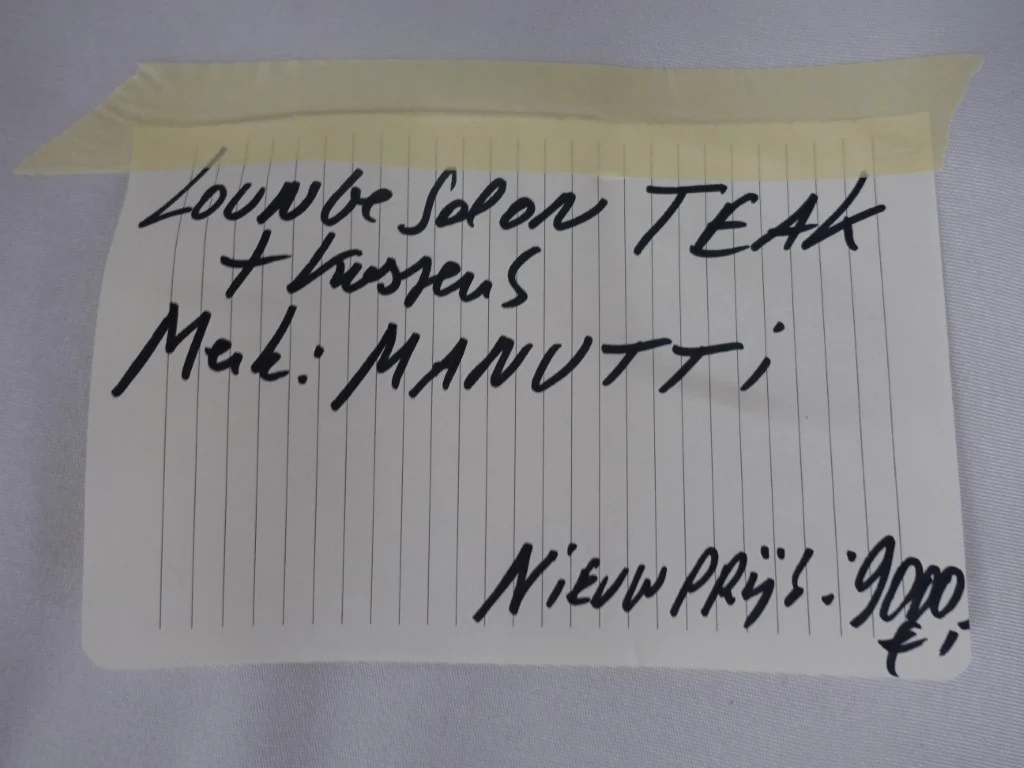 Lounge Salon TEAK
+ kussens
Merk: MANUTTi
NiEUW PRijs: 9000
€